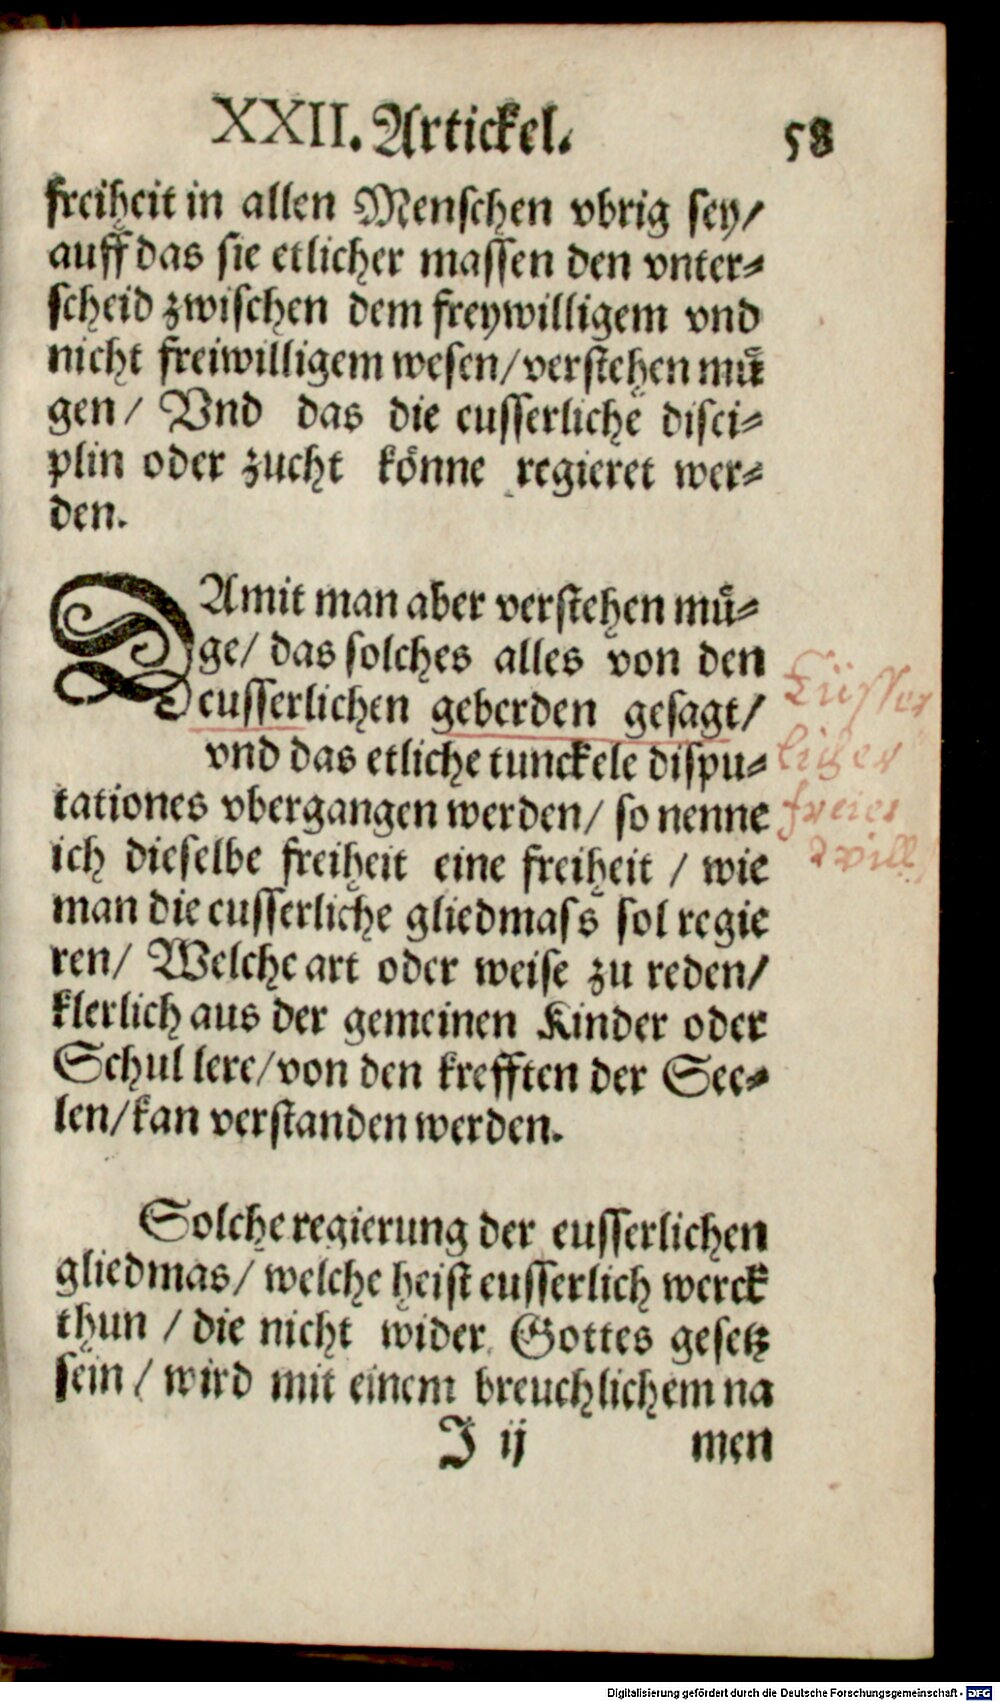 XXII. Artickel. 58
freiheit in allen Menschen vbrig sey/
auff das sie etlicher massen den vnter⸗
scheid zwischen dem freywilligem vnd
nicht freiwilligem wesen/ verstehen muͤ
gen/ Vnd das die eusserliche disci⸗
plin oder zucht koͤnne regieret wer⸗
den.
DAmit man aber verstehen muͤ⸗
ge/ das solches alles von den
eusserlichen geberden gesagt/
vnd das etliche tunckele dispu⸗
tationes vbergangen werden/ so nenne
ich dieselbe freiheit eine freiheit / wie
man die eusserliche gliedmass sol regie
ren/ Welche art oder weise zu reden/
klerlich aus der gemeinen Kinder oder
Schul lere/ von den krefften der See⸗
len/ kan verstanden werden.
Eüsser
licher
freier
will
Solche regierung der eusserlichen
gliedmas/ welche heist eusserlich werck
thun / die nicht wider Gottes gesetz
sein / wird mit einem breuchlichem na
J ij men
Digitalisierung gefördert durch die Deutsche Forschungsgemeinschaft - DFG